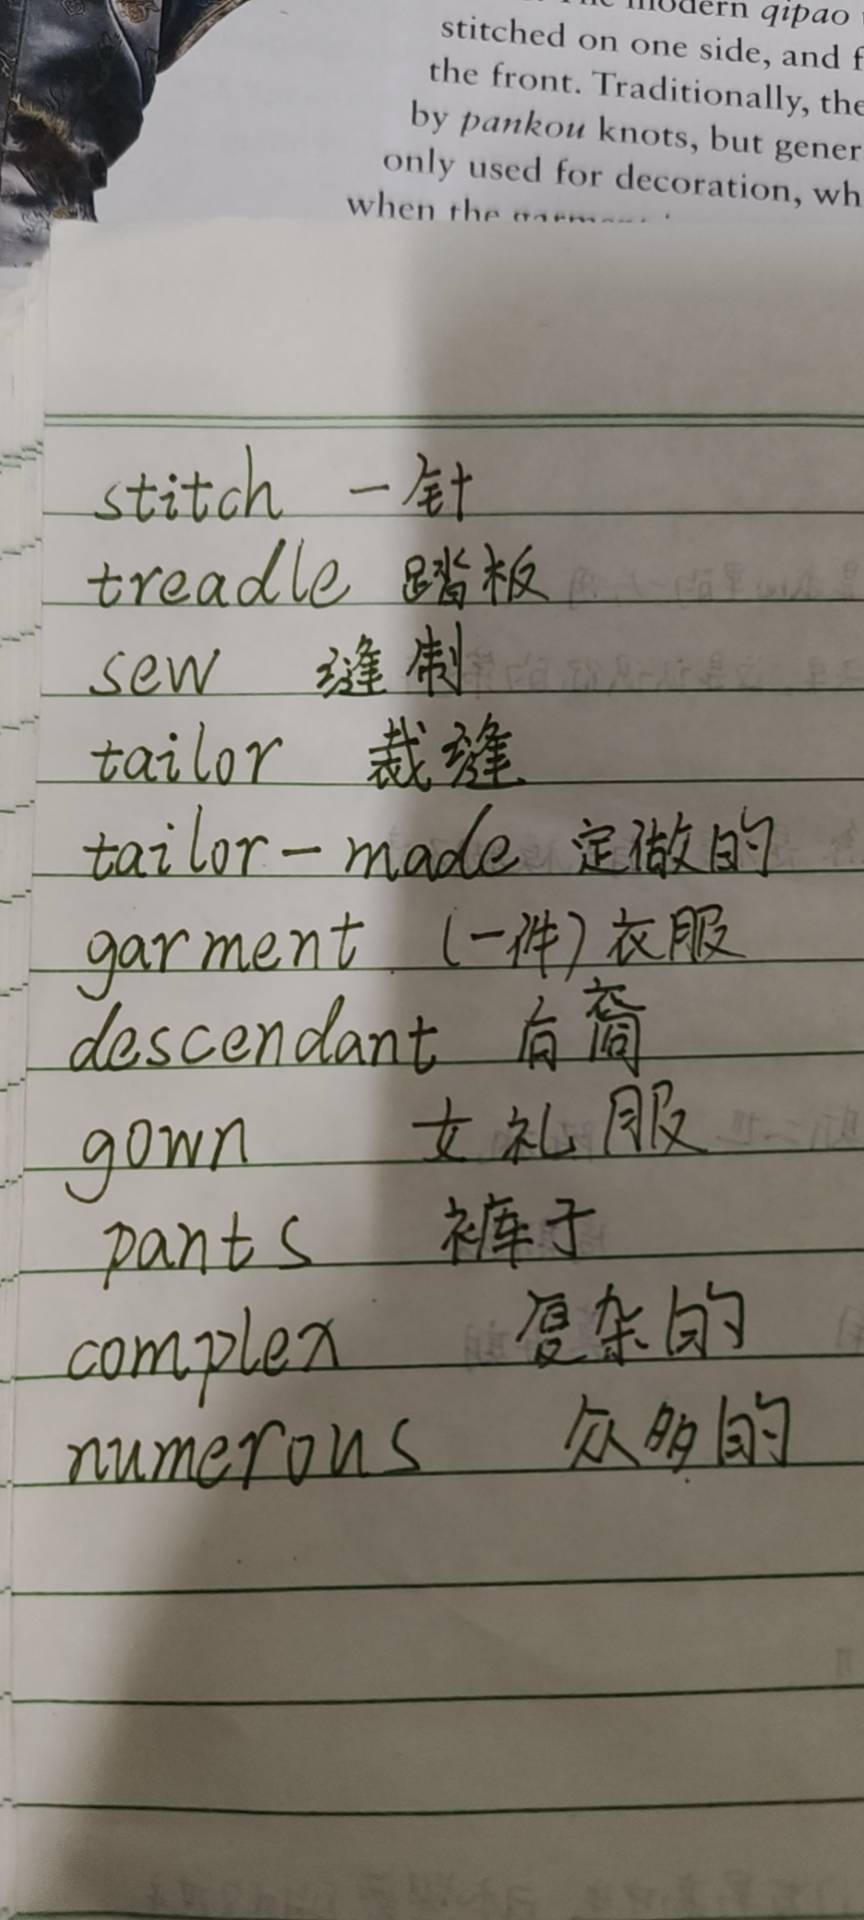 modern qipao
stitched on one side, and f
the front. Traditionally, the
by pankou knots, but gener
only used for decoration, wh
when the
stitch 一针
treadle 踏板
sew 缝制
tailor 裁缝
tailor-made 定做的
garment (一件)衣服
descendant 后裔
gown 女礼服
pants 裤子
complex 复杂的
numerous 众多的